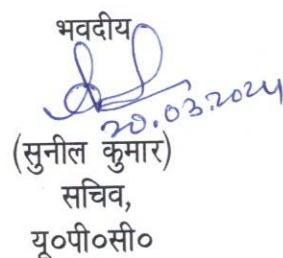 भवदीय
20.03.2024
(सुनील कुमार)
सचिव,
यू०पी०सी०